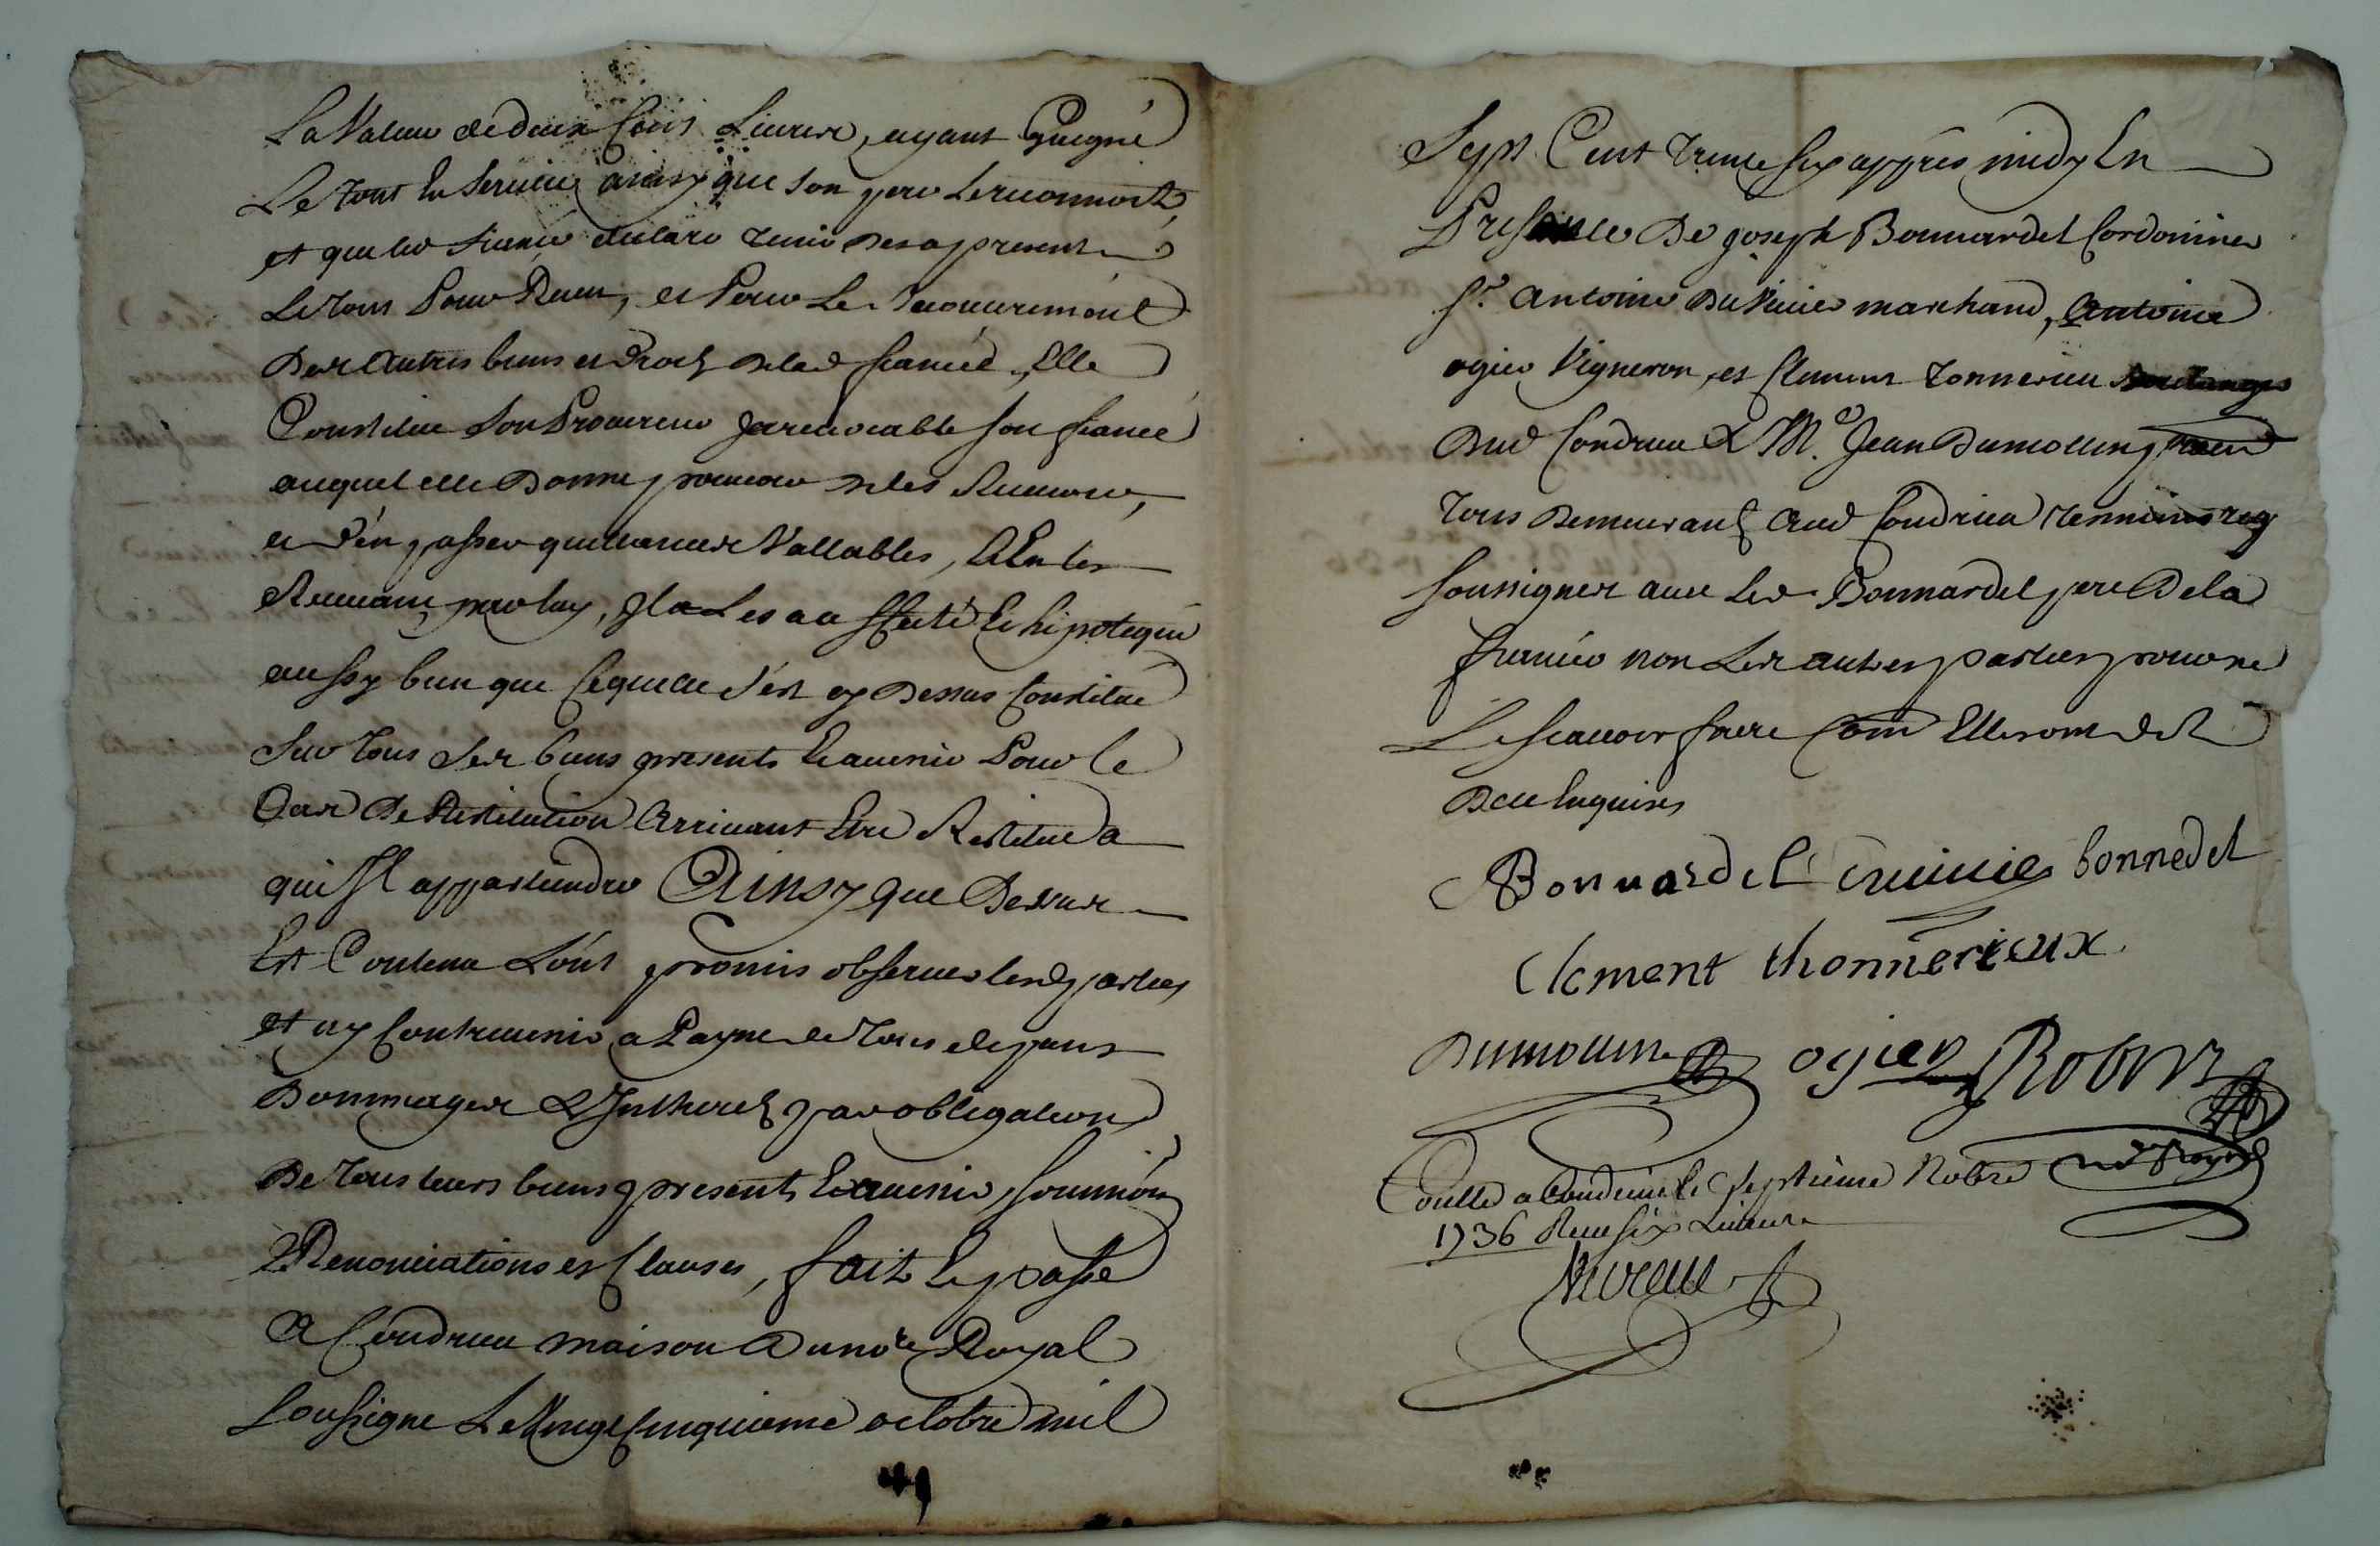 La Valeur de deux Cens Livres, ayant Gaigné
Le tout En Service ainsy que son pere Lereconnoit,
et que led fiancé declare tenir Des a present
Le tout Pour Receu, et Pour Le recouvrement
Des Autres biens et droits de lad fiancée, Elle
Constitue Son Procureur Jrrevocable son fiancé
auquel elle Donne pouvoir de les Recevoir,
et d'en passer quittances Vallables, & En les
Recevant par luy, Jl a Les a affecté Et hipotequé
aussy bien que Ce que Elle s'est cy Dessus Constitué
Sur tous Ses biens presents Et avenir Pour le
Cas De Restitution Arrivant Etre Restitué a
qui Jl appartiendra Ainsy que Dessus
Est Contenu L'ont promis observer lesd parties
et ny Contrevenir a Payne de Tous depans
Dommages & Jntherets par obligation
De Tous leurs biens presents Et avenir, soumions
Renonciations et Clauses, fait Et passé
A Condrieu maison Du nore Royal
Soussigné Le Vingt Cinquieme octobre mil
Sept Cent Trente six appres midy En
Presence De joseph Bonnardel Cordonnier
Sr. Antoine Du Vivier marchand, Antoine
ogier Vigneron, et Clement Tonnerieu
Dud Condrieu & Me. Jean Dumollin
Tous Demeurants Aud Condrieu Temoins req
soussignez avec Led Bonnardel pere De la
fiancée non Les autres parties pour ne
Le scavoir faire Com Elles ont dit
De ce Enquises
Bonnardel bonnedel
Clement thonnerieux
Dumoulin ogier Robin
nore Royal
Conllé a Condrieu le septieme Nobre
1736 Receu six Livres